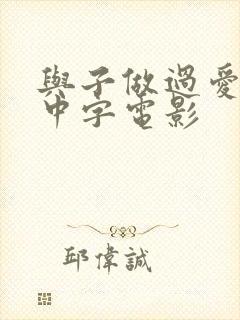 與子做過愛
中字電影
邱偉誠